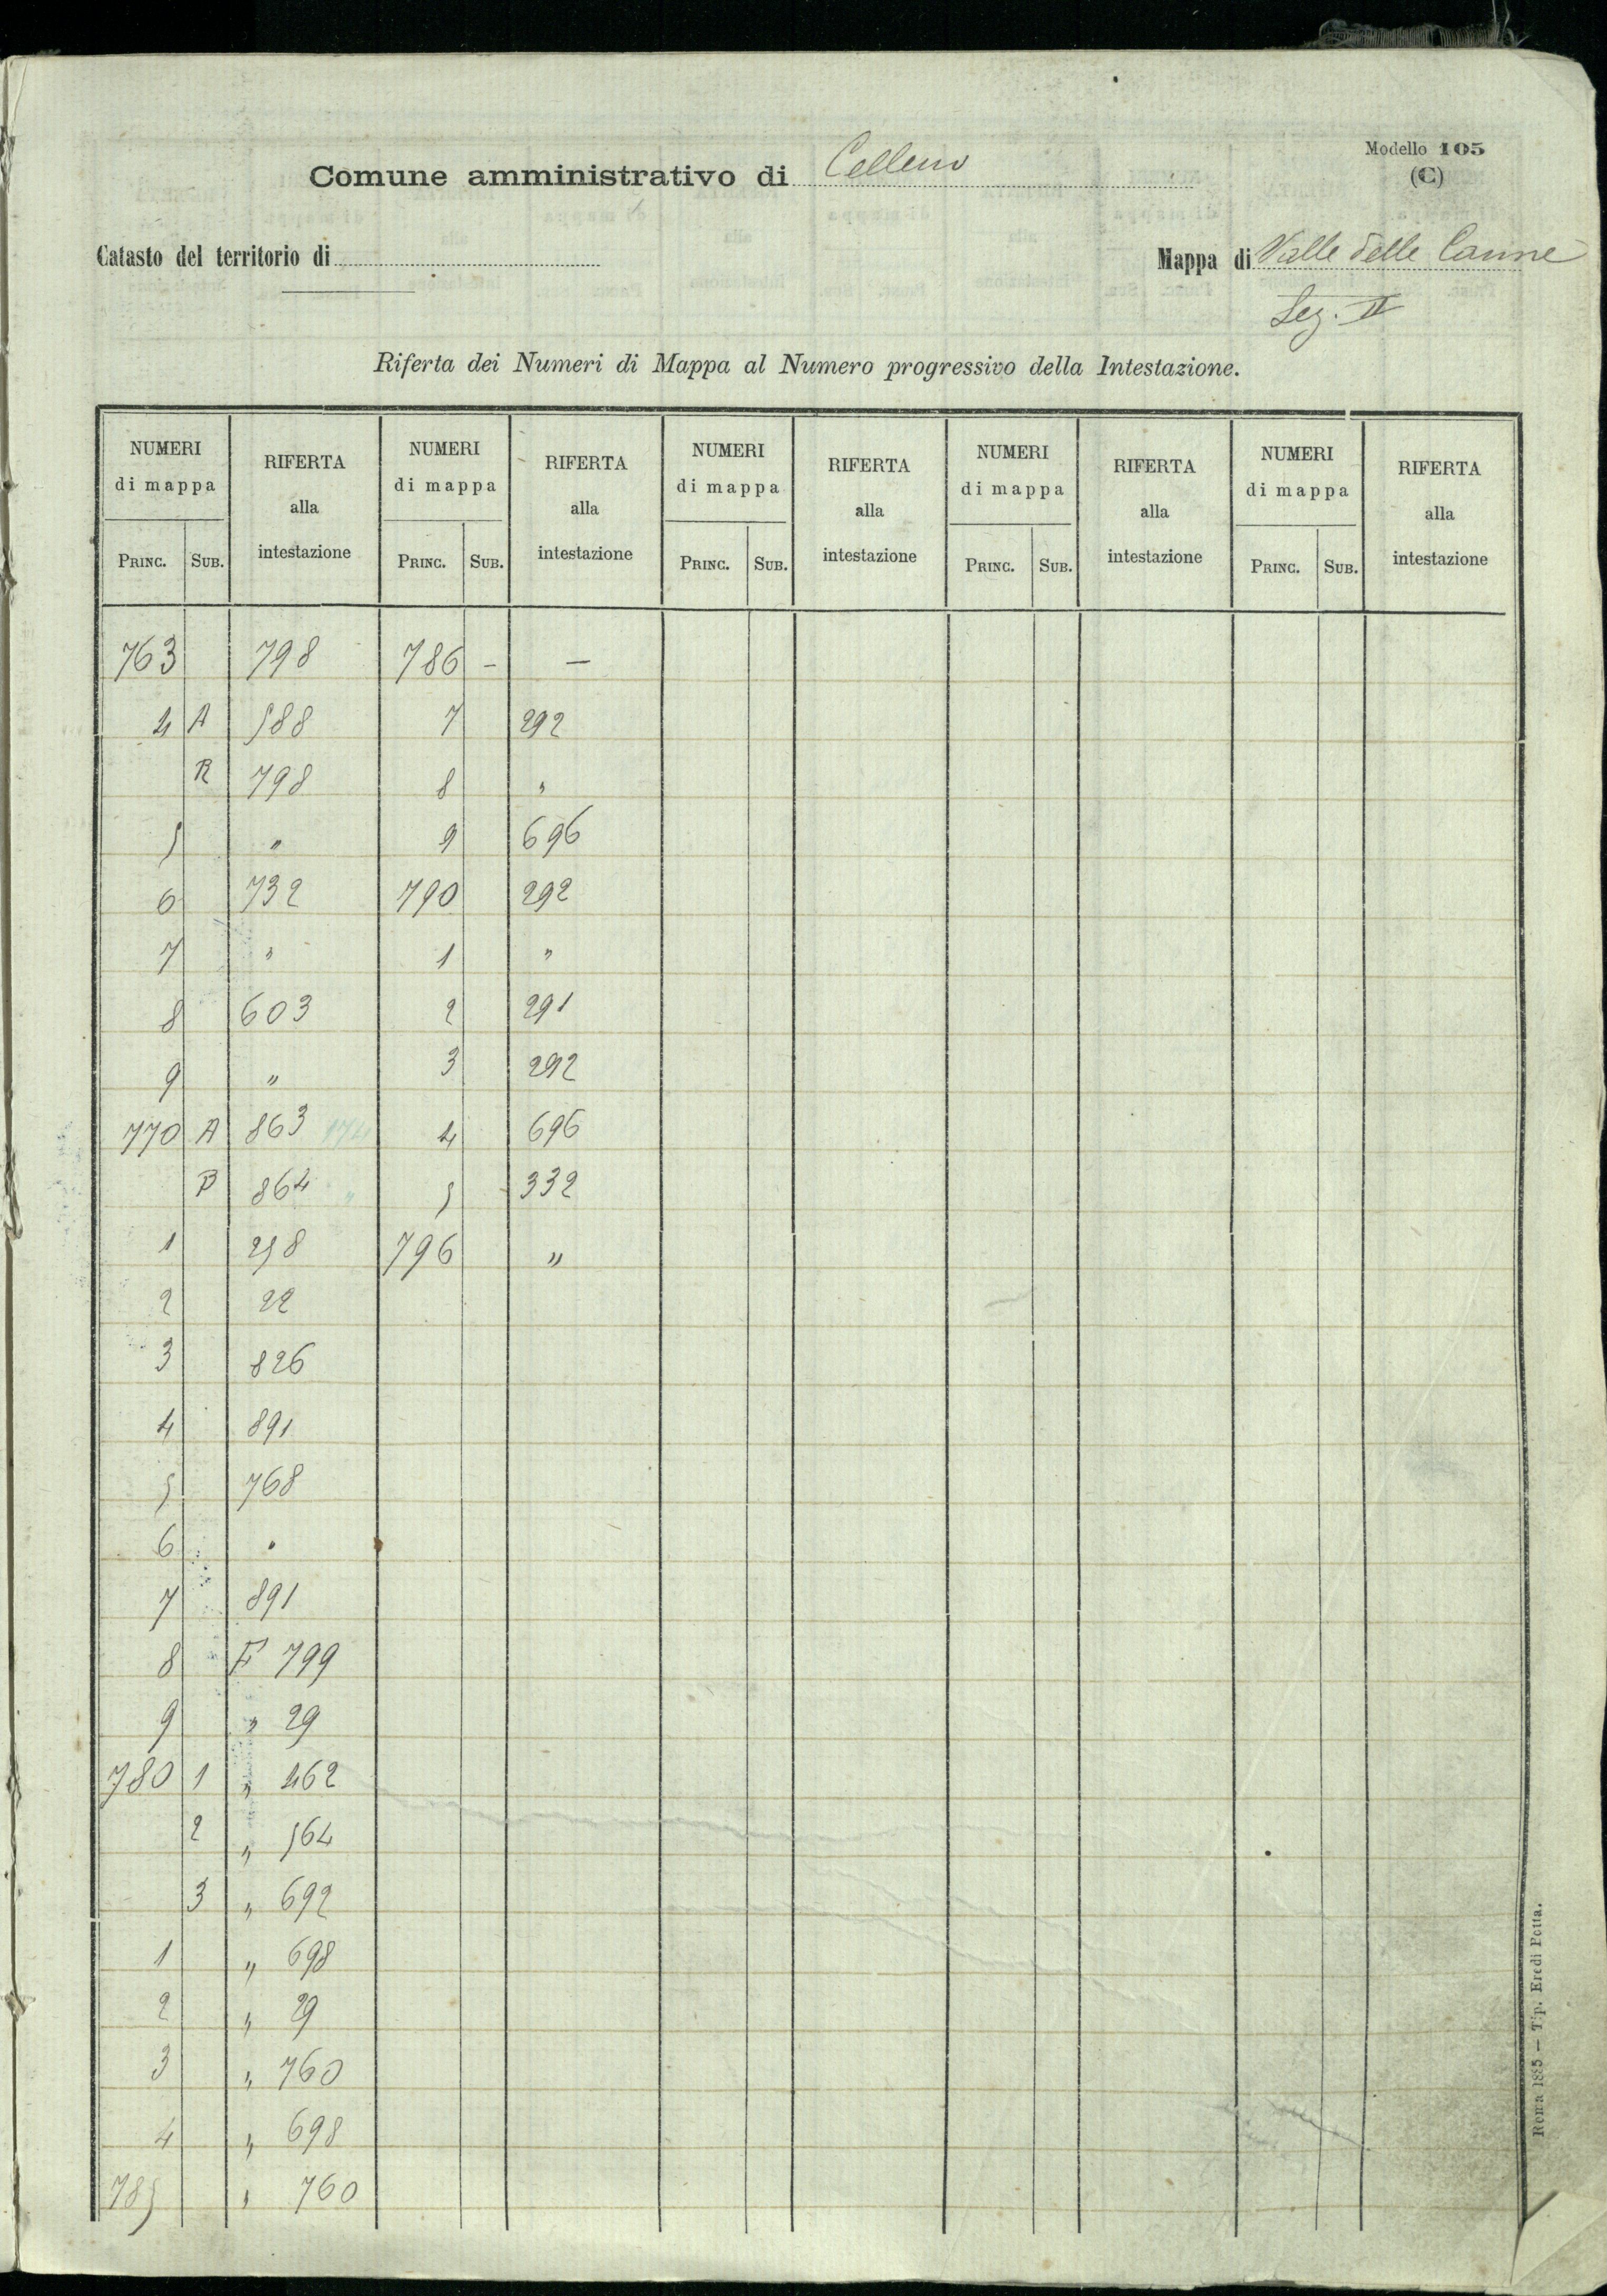 Modello 105
(C)
Comune amministrativo di Celleno
Catasto del territorio di
Mappa di Valle delle Canne
Sez. II
Riferta dei Numeri di Mappa al Numero progressivo della Intestazione.
NUMERI di mappa RIFERTA alla intestazione NUMERI di mappa RIFERTA alla intestazione NUMERI di mappa RIFERTA alla intestazione NUMERI di mappa RIFERTA alla intestazione NUMERI di mappa RIFERTA alla intestazione
PRINC. SUB. PRINC. SUB. PRINC. SUB. PRINC. SUB. PRINC. SUB.
763 798 786 - —
4 A 588 7 292
R 798 8 "
5 " 9 696
6 732 790 292
7 " 1 "
8 603 2 291
9 " 3 292
770 A 863 174 4 696
B 864 " 5 332
1 258 796 "
2 22
3 826
4 891
5 768
6 "
7 891
8 F 799
9 " 29
780 1 " 462
2 " 564
3 " 692
1 " 698
2 " 29
3 " 760
4 " 698
785 " 760
Roma 1885 — Tip. Eredi Botta.